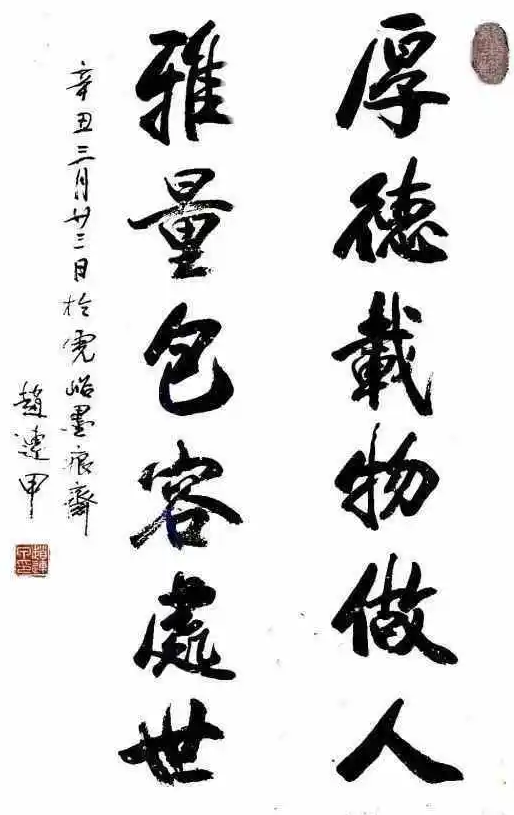 厚德載物做人
雅量包容處世
辛丑三月廿三日於虎峪墨痕齋
趙連甲